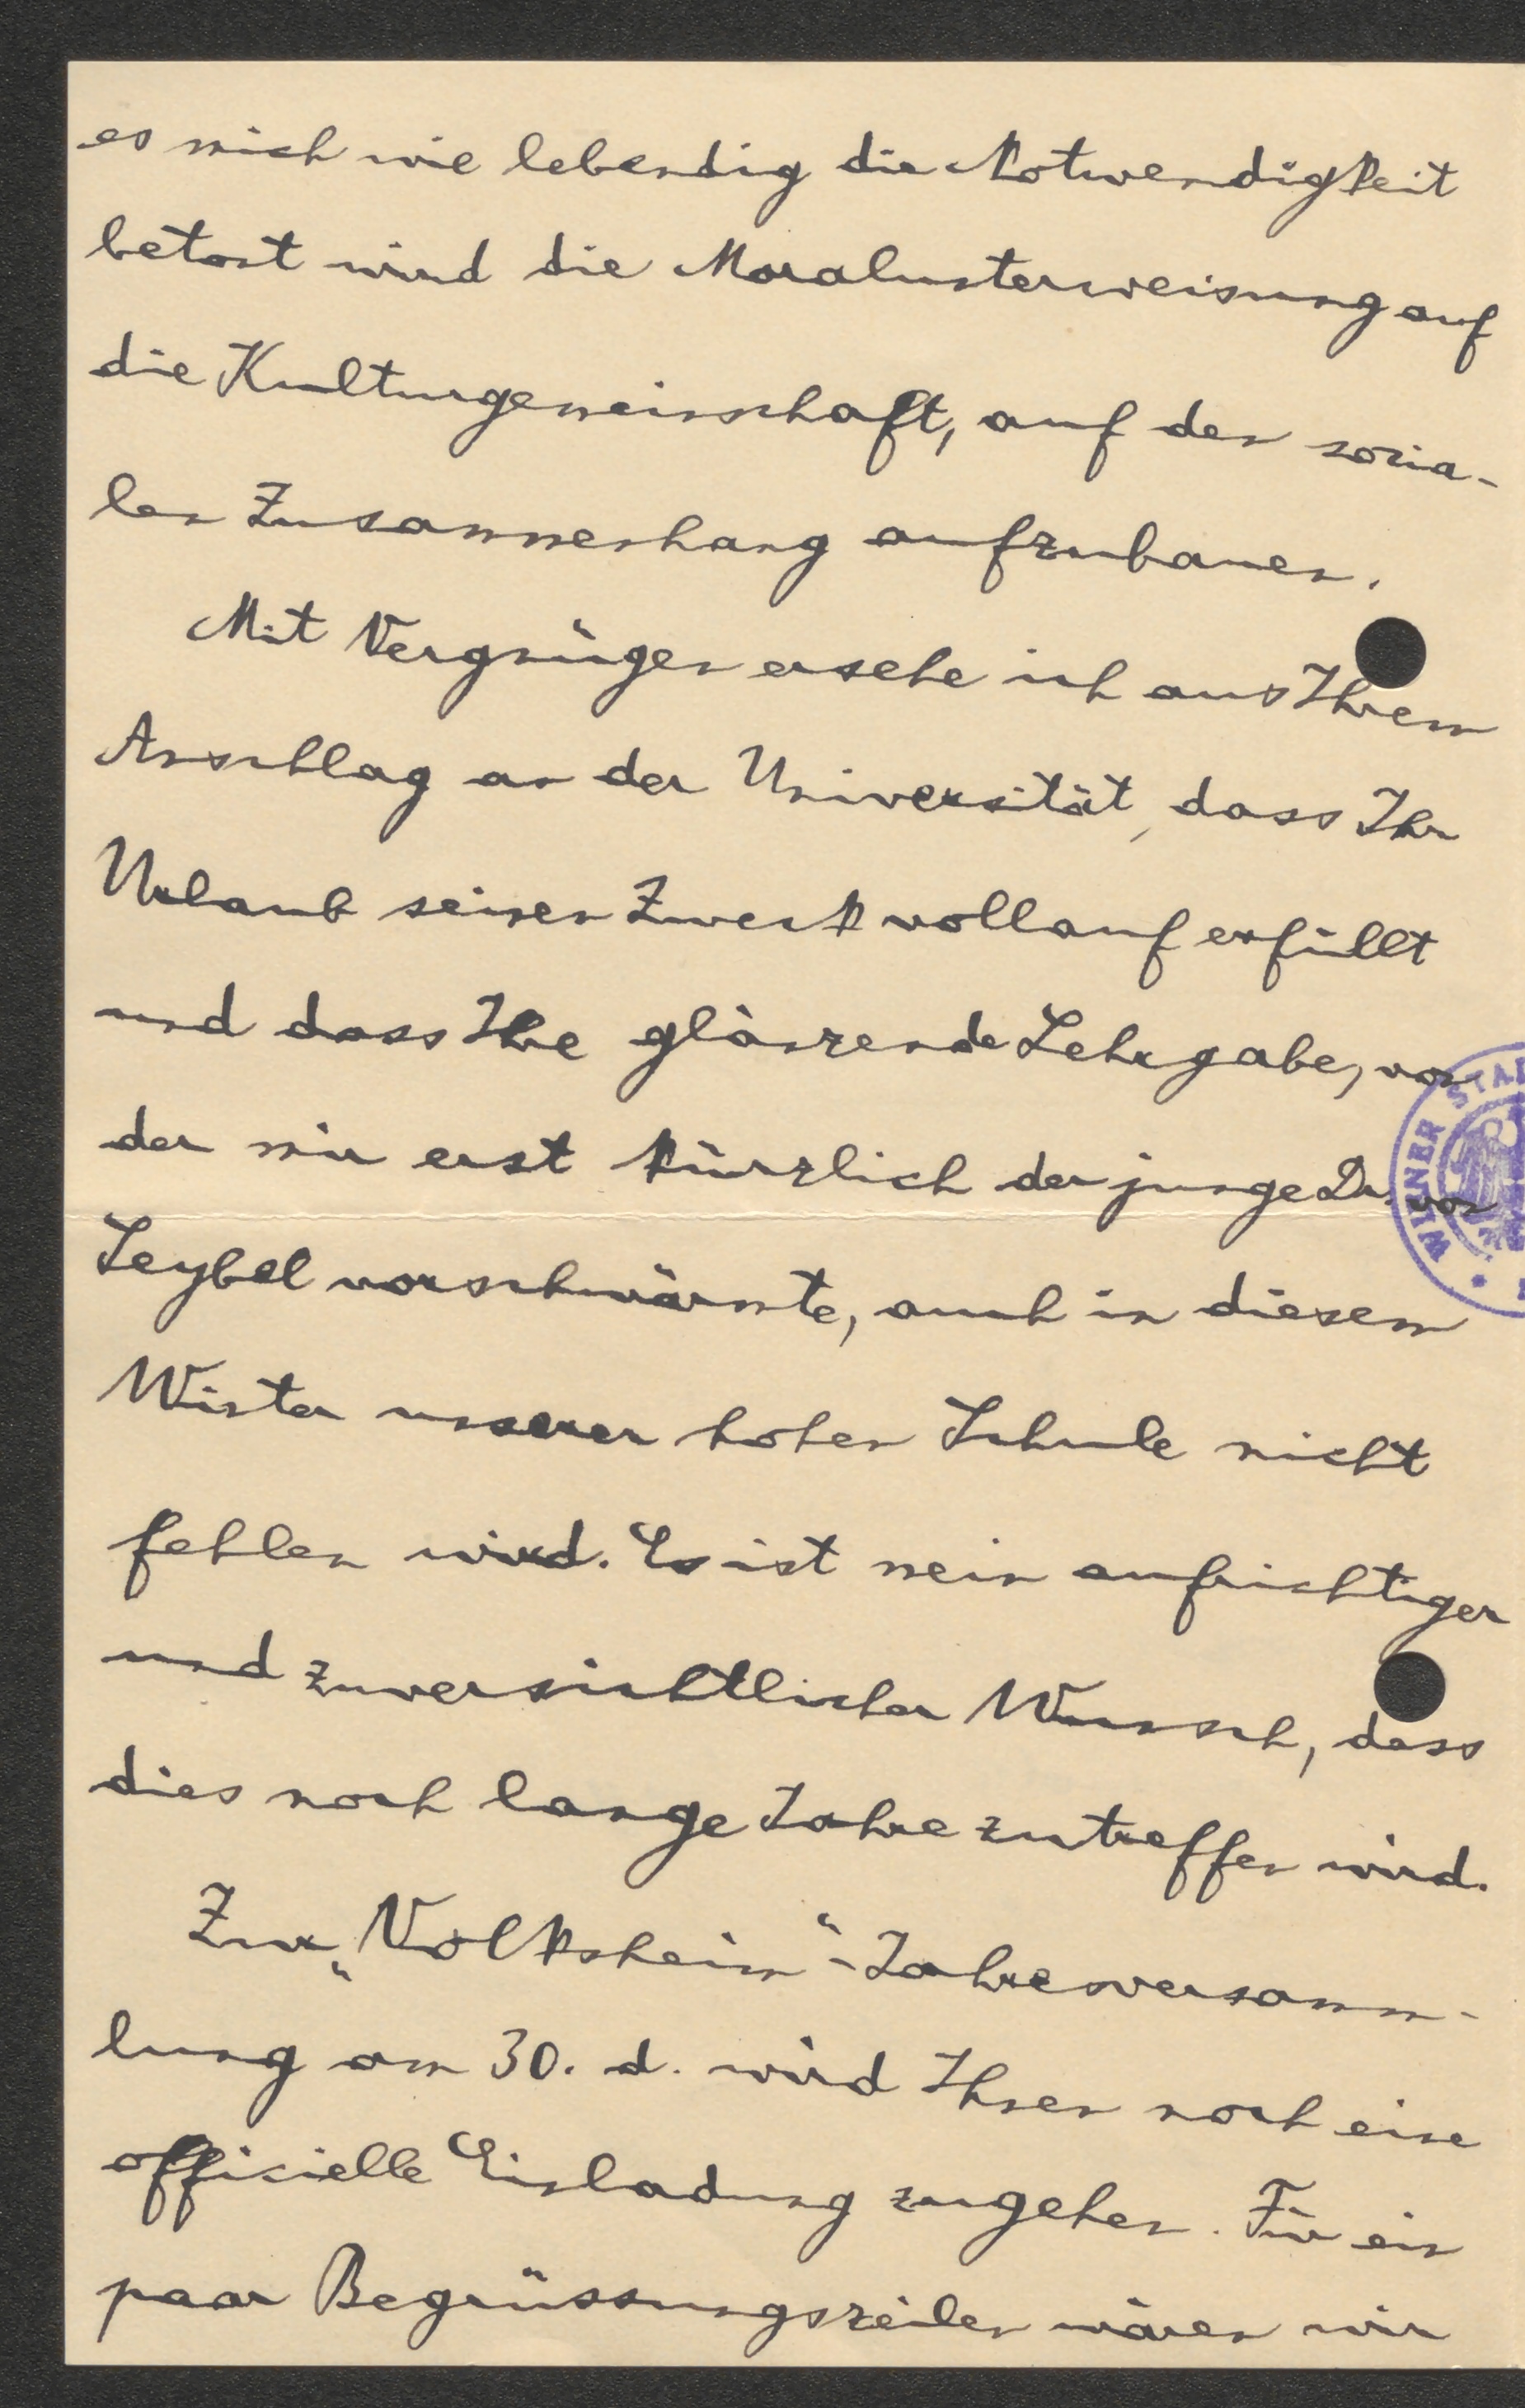 es mich wie lebendig die Notwendigkeit
betont wird die Moralunterweisung auf
die Kulturgemeinschaft, auf den sozia-
len Zusammenhang aufzubauen.
Mit Vergnügen ersehe ich aus Ihrem
Anschlag an der Universität, dass Ihr
Urlaub seinen Zweck vollauf erfüllt
und dass Ihre glänzende Lehrgabe, von
der mir erst kürzlich der junge Dr. von
Leybel vorschwärmte, auch in diesem
Winter unserer hohen Schule nicht
fehlen wird. Es ist mein aufrichtiger
und zuversichtlicher Wunsch, dass
dies noch lange Jahre zutreffen wird.
Zur „Volksheim“-Jahresversamm-
lung am 30. d. wird Ihnen noch eine
officielle Einladung zugehen. Für ein
paar Begrüssungszeilen wären wir
WIENER STAD